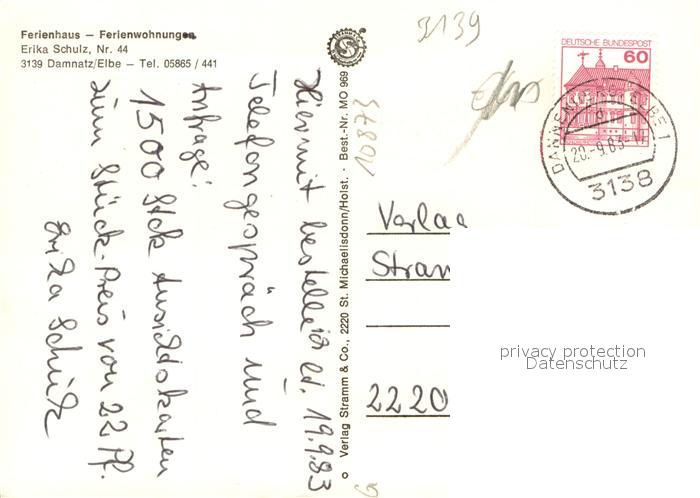 Ferienhaus – Ferienwohnungen
Erika Schulz, Nr. 44
3139 Damnatz/Elbe – Tel. 05865 / 441
Hiermit bestelle ich lt. 19.9.83
Telefongespräch und
Anfrage:
1500 Stck Ansichtskarten
zum Stück-Preis von 22 Pf.
Erika Schulz
o Verlag Stramm & Co., 2220 St. Michaelisdonn/Holst. · Best.-Nr. MO 969
10873
3139
DEUTSCHE BUNDESPOST
60
20.-9.83
3138
Verlag
Stram
2220
privacy protection
Datenschutz